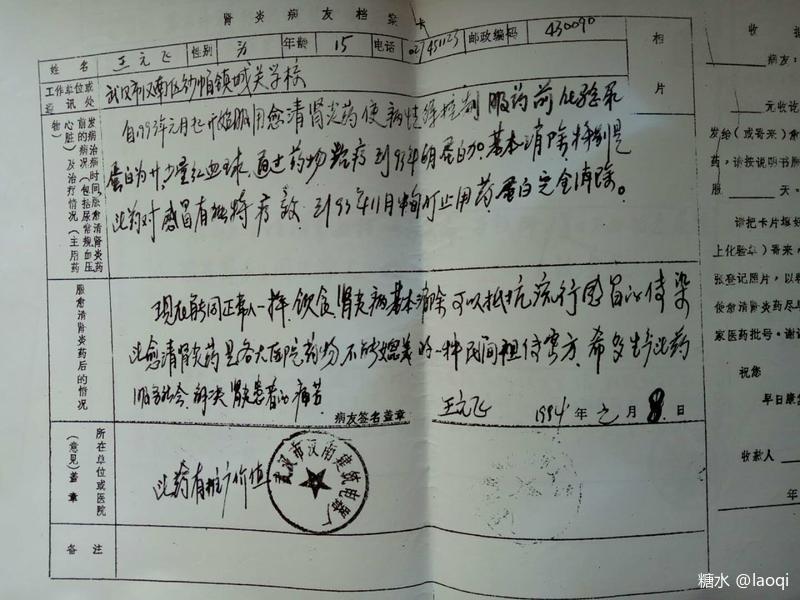 肾炎病友档案卡
姓名 王元飞 性别 男 年龄 15 电话 027451123 邮政编码 430090
相片
工作单位或通讯处 武汉市汉南区纱帽镇城关学校
发病治病时间,服愈清肾炎药前的病况(包括尿常规血压心脏)及治疗情况(主用药物)
自1993年元月起开始服用愈清肾炎药使病情得控制 服药前化验尿
蛋白为卄,少量红血球,通过药物治疗到93年 月蛋白 基本消除,特别是
此药对感冒有独特疗效,到93年11月 停止用药,蛋白完全消除。
服愈清肾炎药后的情况
现在能同正常人一样,饮食,肾炎病基本消除可以抵抗流行感冒的传染
此愈清肾炎药是各大医院药物,不能媲美的一种民间祖传密方,希多生产此药
服务社会,解决肾炎患者的痛苦
病友签名盖章 王元飞 1994年 元月8日
所在单位或医院(意见)盖章
此药有推广价值
武汉市汉南建筑电器厂
备注
收据
病友:
元收讫
发给(或寄来)
药,请按说明书服
服 天。
请把卡片填好
上化验单)寄来,
张登记照片,以
使愈清肾炎药尽
家医药批号。谢
祝您
早日康复
收款人
年
糖水 @laoqi